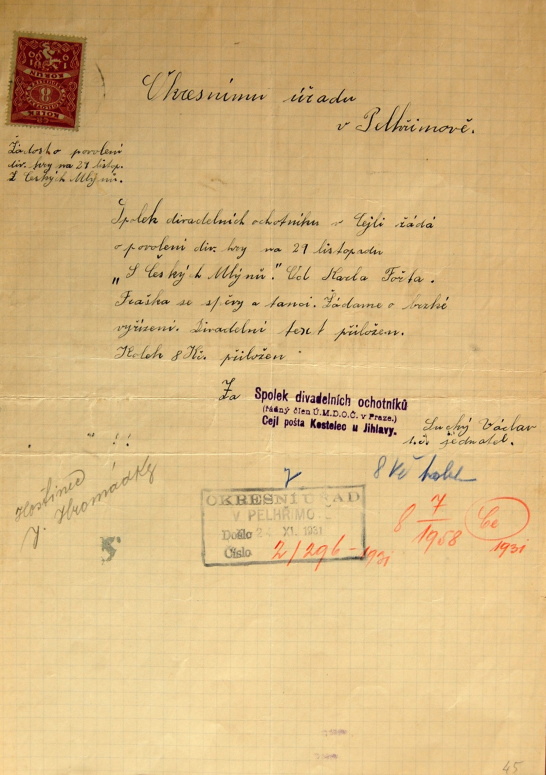 Okresnímu úřadu
v Pelhřimově.
Žádost o povolení
div. hry na 21 listop.
Z Českých Mlýnů.
Spolek divadelních ochotníku v Cejli žádá
o povolení div. hry na 21 listopadu
„Z Českých Mlýnů." Od Karla Fořta.
Fraška se zpěvy a tanci. Žádame o brzké
vyřízení. Divadelní text přiložen.
Kolek 8 Kč. přiložen
Za
Spolek divadelních ochotníků
(řádný člen Ú.M.D.O.Č. v Praze.)
Cejl pošta Kostelec u Jihlavy.
Suchý Václav
t.č. jednatel.
Hostinec
J. Hromádky
8 Kč kolek
OKRESNÍ ÚŘAD
V PELHŘIMOVĚ
Došlo 2 XI. 1931
Číslo 2/296 - 1931
8 7/1958
1931
45